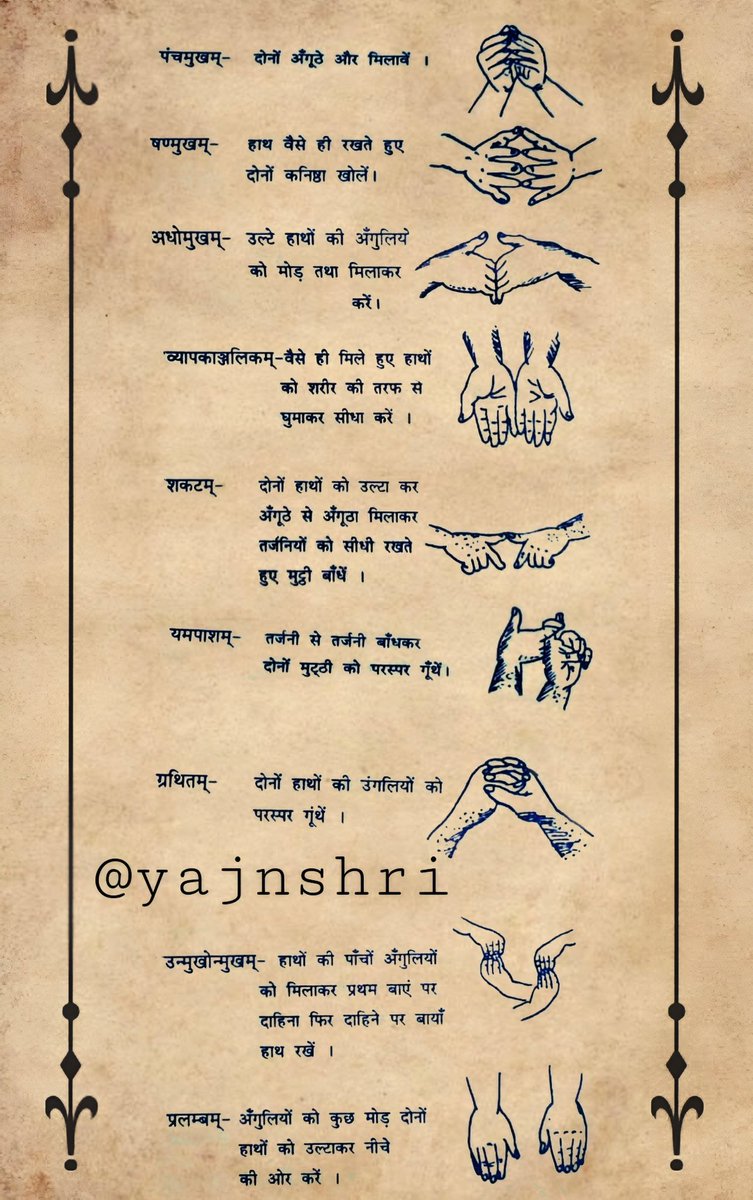 पंचमुखम्- दोनों अँगूठे और मिलावें ।
षण्मुखम्- हाथ वैसे ही रखते हुए
दोनों कनिष्ठा खोलें।
अधोमुखम्- उल्टे हाथों की अँगुलिये
को मोड़ तथा मिलाकर
करें।
व्यापकाञ्जलिकम्-वैसे ही मिले हुए हाथों
को शरीर की तरफ से
घुमाकर सीधा करें ।
शकटम्- दोनों हाथों को उल्टा कर
अँगूठे से अँगूठा मिलाकर
तर्जनियों को सीधी रखते
हुए मुट्ठी बाँधें ।
यमपाशम्- तर्जनी से तर्जनी बाँधकर
दोनों मुट्ठी को परस्पर गूँथें।
ग्रथितम्- दोनों हाथों की उंगलियों को
परस्पर गूंथें ।
@yajnshri
उन्मुखोन्मुखम्- हाथों की पाँचों अँगुलियों
को मिलाकर प्रथम बाएं पर
दाहिना फिर दाहिने पर बायाँ
हाथ रखें ।
प्रलम्बम्- अँगुलियों को कुछ मोड़ दोनों
हाथों को उल्टाकर नीचे
की ओर करें ।